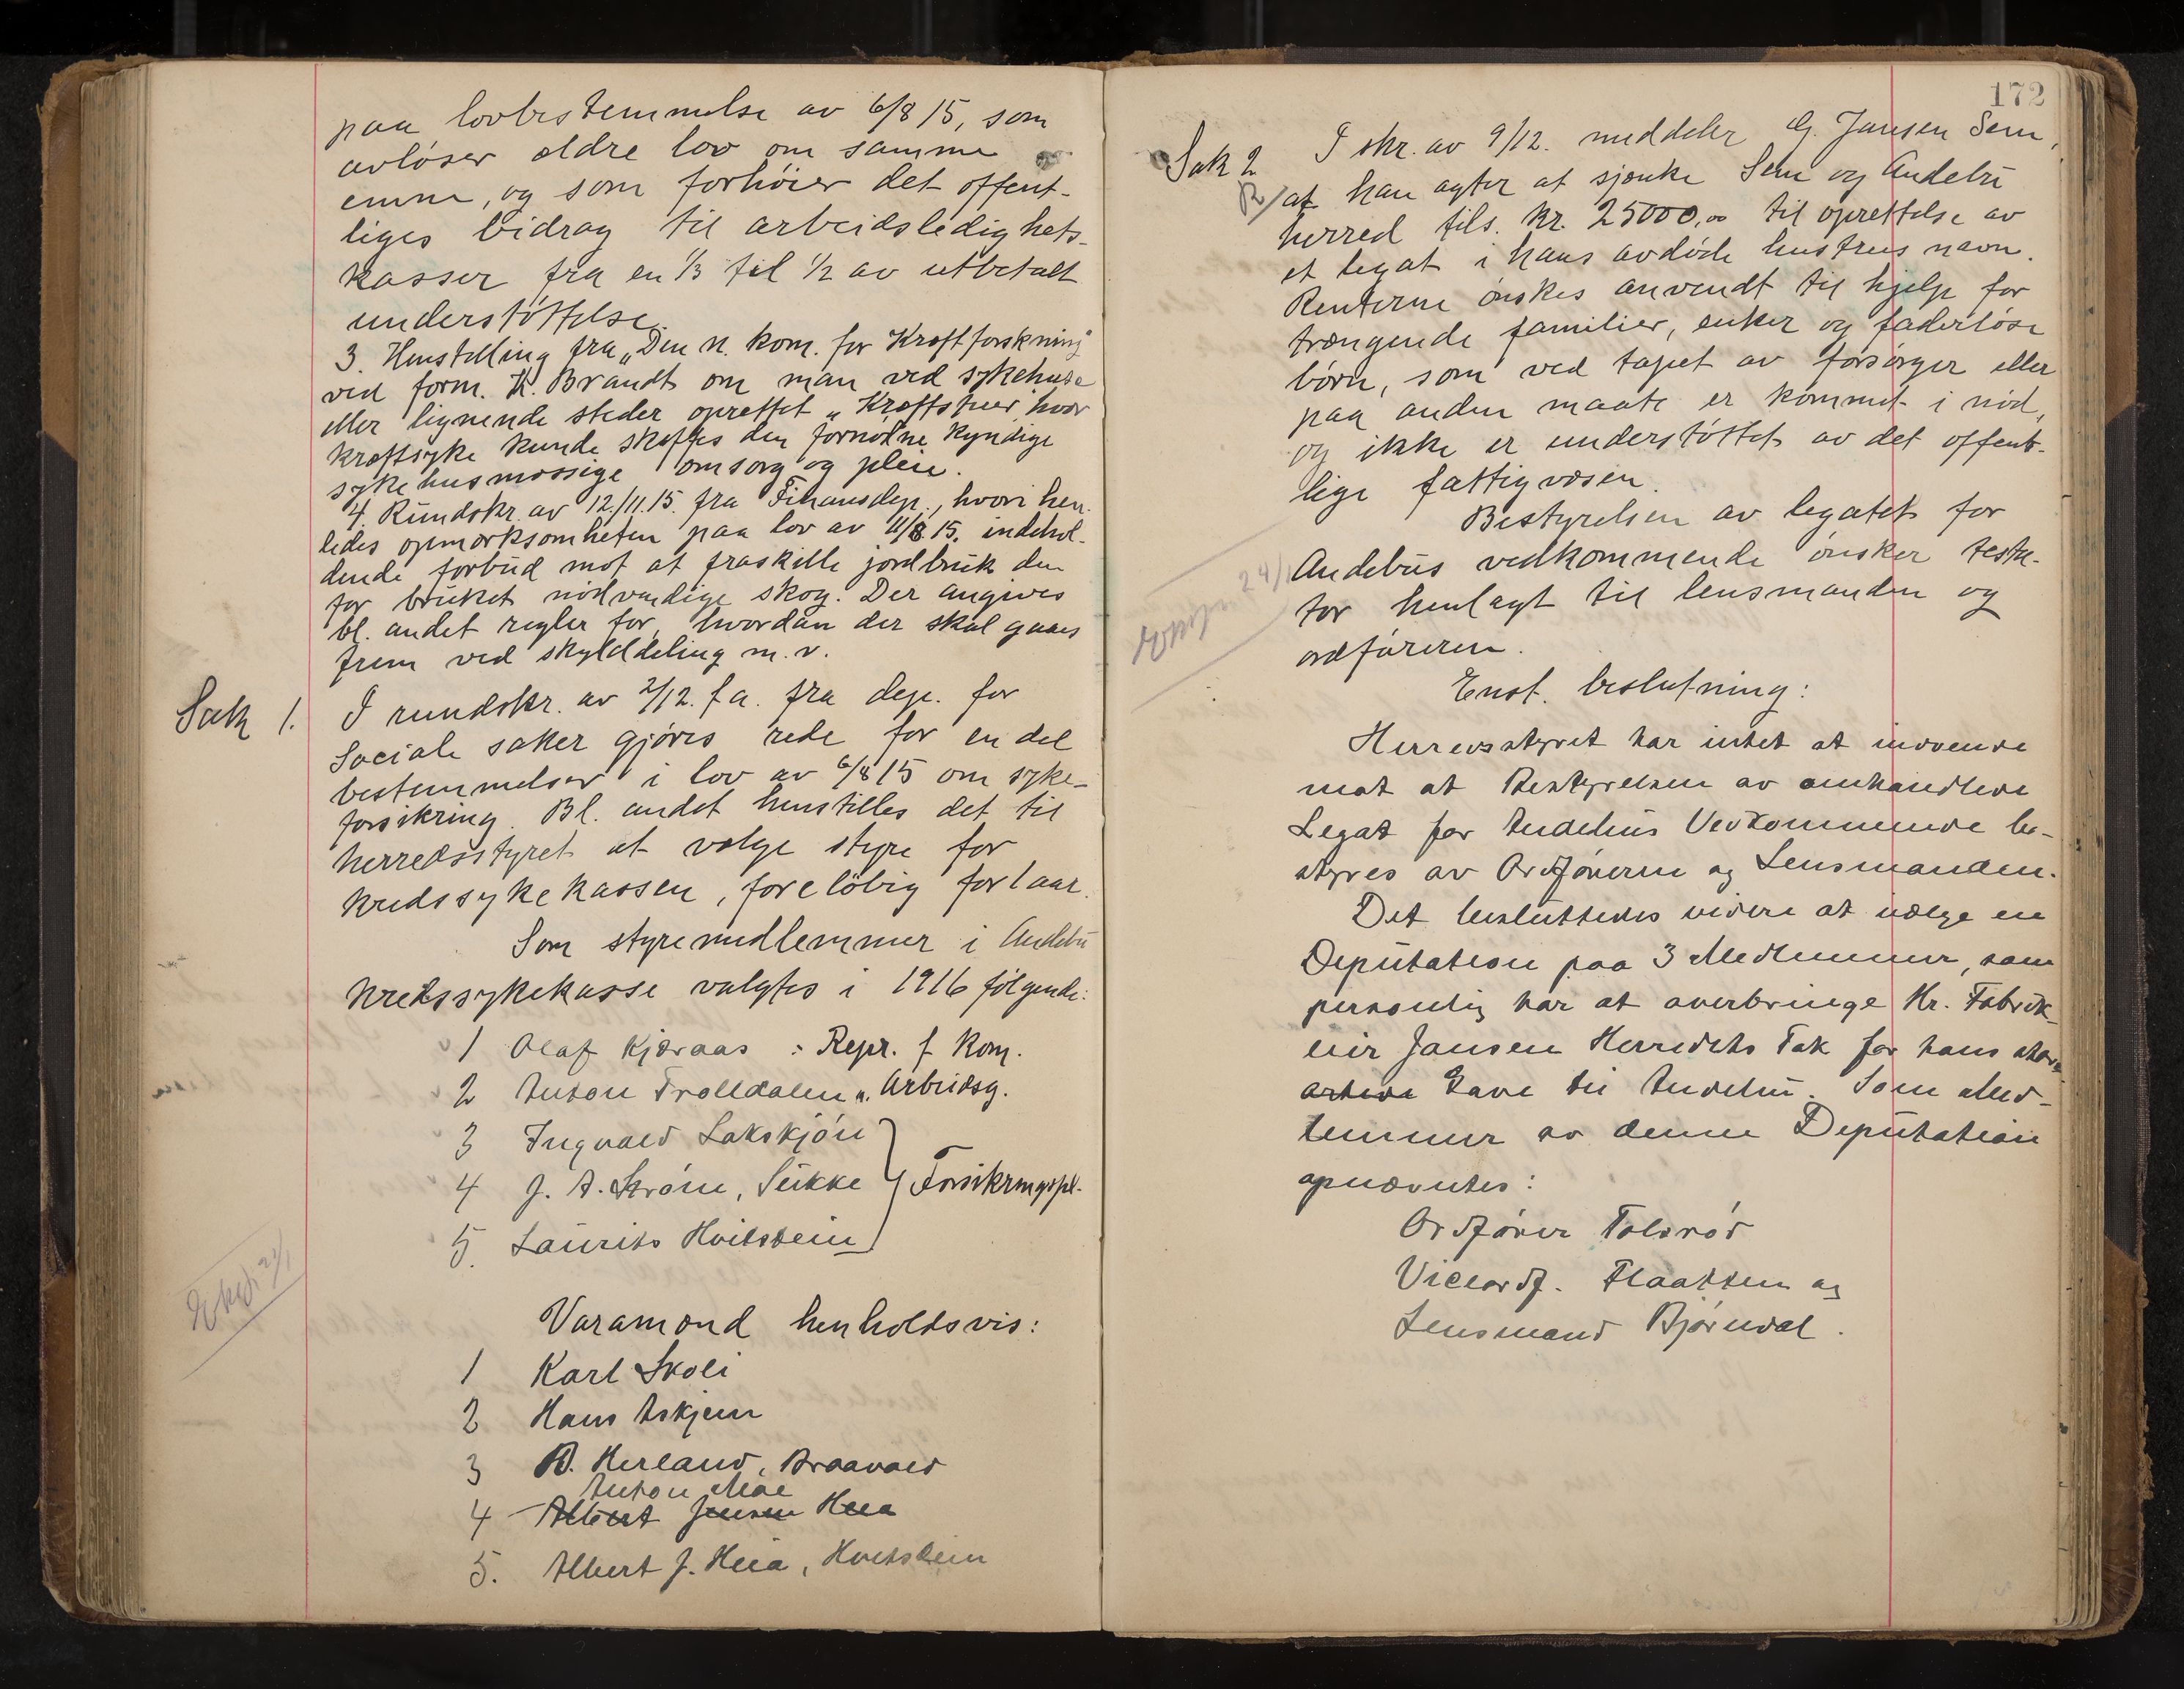 paa lovbestemmelse av 6/8 15, som
avløser ældre lov om samme
emne, og som forhøier det offent-
liges bidrag til arbeidsledighets-
kasser fra en 1/3 til 1/2 av utbetalt
understøttelse.
3. Henstilling fra „Den n. kom. for Kræftforskning"
ved form. K. Brandt om man ved sykehuse
eller lignende steder oprettet „Kræftstuer" hvor
kræftsyke kunde skaffes den fornødne kyndige
sykehusmæssige omsorg og pleie.
4. Rundskr. av 12/11.15. fra Finansdep., hvori hen-
ledes opmerksomheten paa lov av 11/8.15. indehol-
dende forbud mot at fraskille jordbruk den
for bruket nødvendige skog. Der angives
bl. andet regler for, hvordan der skal gaaes
frem ved skylddeling m. v.
Sak 1. I rundskr. av 2/12. f a. fra dep. for
Sociale saker gjøres rede for en del
bestemmelser i lov av 6/8 15 om syke-
forsikring. Bl. andet henstilles det til
herredsstyret at vælge styre for
kredssykekassen, foreløbig for 1 aar.
Som styremedlemmer i Andebu
kredssykekasse valgtes i 1916 følgende:
1 Olaf Kjæraas : Repr. f Kom.
2 Anton Trolldalen „ Arbeidsg.
3 Ingvald Lakskjøn
4 J. A. Strøm, Sukke Forsikringspl.
5. Laurits Hvitstein
Varamænd henholdsvis:
1 Karl Skoli
2 Hans Askjem
3 B. Herland, Braavold
Anton Moe
4 Albert Jensen Heia
5. Albert J. Heia, Hvitstein
172
Sak 2 I skr. av 9/12. meddeler G. Jansen Sem,
at han agter at sjænke Sem og Andebu
herred tils. kr. 25000,00 til oprettelse av
et legat i hans avdøde hustrus navn.
Renterne ønskes anvendt til hjelp for
trængende familier, enker og faderløse
børn, som ved tapet av forsørger eller
paa anden maate er kommet i nød,
og ikke er understøttet av det offent-
lige fattigvæsen.
Bestyrelsen av legatet for
Andebus vedkommende ønsker testa-
tor henlagt til lensmanden og
ordføreren.
Enst. beslutning:
Herredsstyret har intet at indvende
mot at Bestyrelsen av omhandlede
Legat for Andebus Vedkommende be-
styres av Ordføreren og Lensmanden.
Det besluttedes videre at vælge en
Deputation paa 3 Medlemmer, som
personlig har at overbringe Hr. Fabrik-
eier Jansen Herredets Tak for hans stor-
artede Gave til Andebu. Som Med-
lemmer av denne Deputation
opnævntes:
Ordfører Tolsrød
Viceordf. Flaatten og
Lensmand Bjørndal.